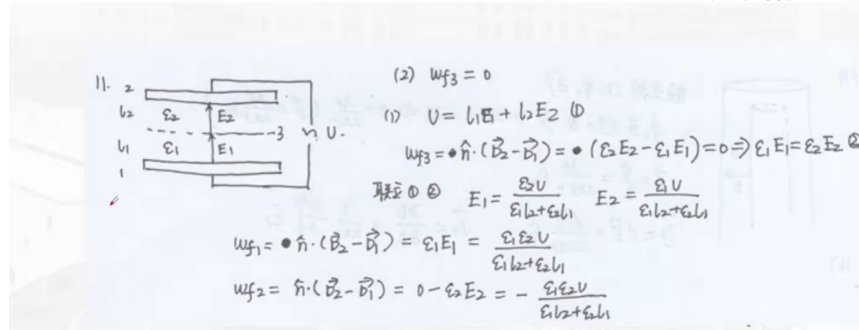 11.
2
l₂ ε₂ E₂
3 ∿ U.
l₁ ε₁ E₁
1
(2) wf₃ = 0
(1) U = l₁E₁ + l₂E₂ ①
wf₃ = n̂·(D⃗₂-D⃗₁) = (ε₂E₂-ε₁E₁) = 0 ⇒ ε₁E₁ = ε₂E₂ ②
联立 ① ② E₁ = ε₂U/(ε₁l₂+ε₂l₁) E₂ = ε₁U/(ε₁l₂+ε₂l₁)
wf₁ = n̂·(D⃗₂-D⃗₁) = ε₁E₁ = ε₁ε₂U/(ε₁l₂+ε₂l₁)
wf₂ = n̂·(D⃗₂-D⃗₁) = 0-ε₂E₂ = - ε₁ε₂U/(ε₁l₂+ε₂l₁)